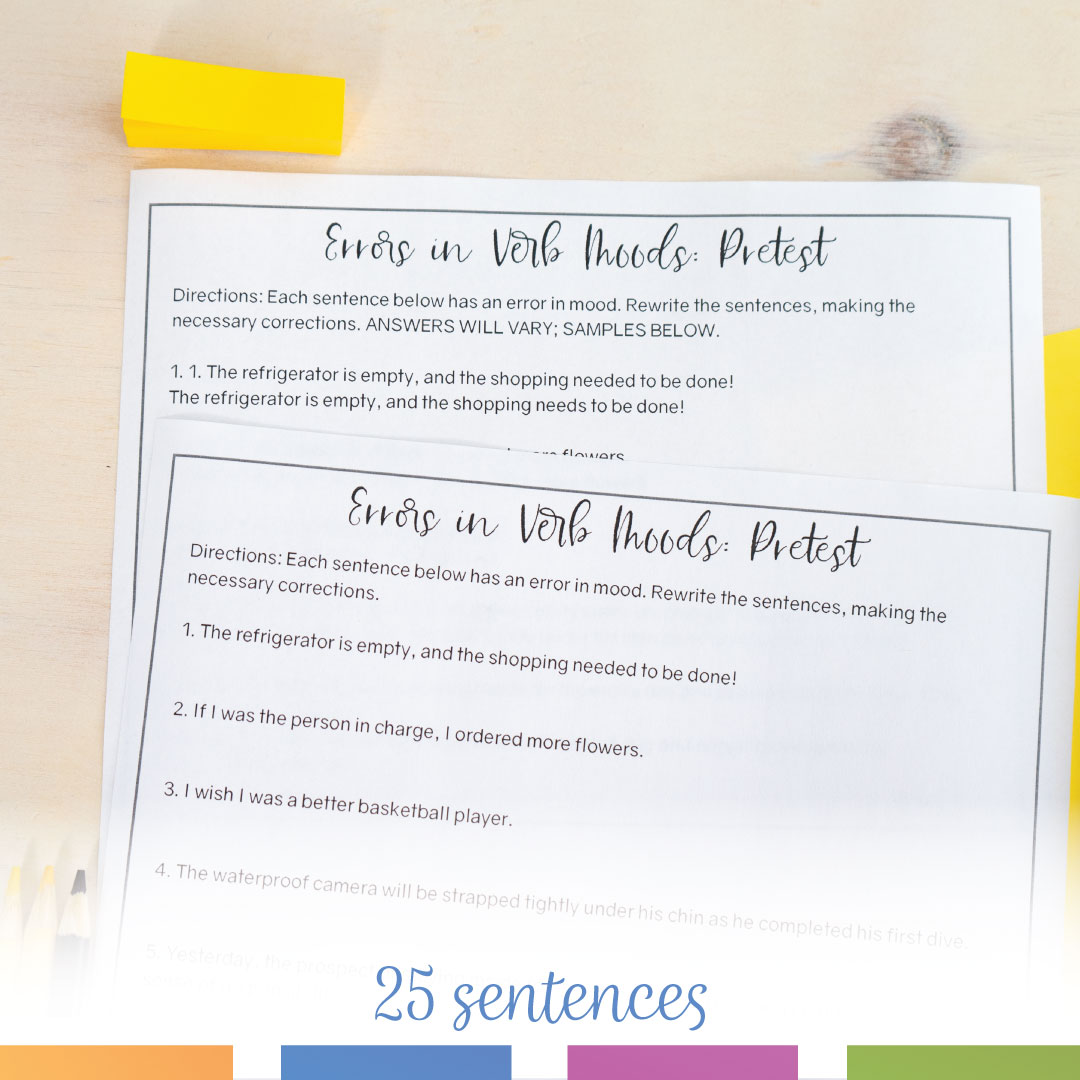 Errors in Verb Moods: Pretest
Directions: Each sentence below has an error in mood. Rewrite the sentences, making the
necessary corrections. ANSWERS WILL VARY; SAMPLES BELOW.
1. 1. The refrigerator is empty, and the shopping needed to be done!
The refrigerator is empty, and the shopping needs to be done!
flowers
Errors in Verb Moods: Pretest
Directions: Each sentence below has an error in mood. Rewrite the sentences, making the
necessary corrections.
1. The refrigerator is empty, and the shopping needed to be done!
2. If I was the person in charge, I ordered more flowers.
3. I wish I was a better basketball player.
4. The waterproof camera will be strapped tightly under his chin as he completed his first dive.
5. Yesterday, the
25 sentences